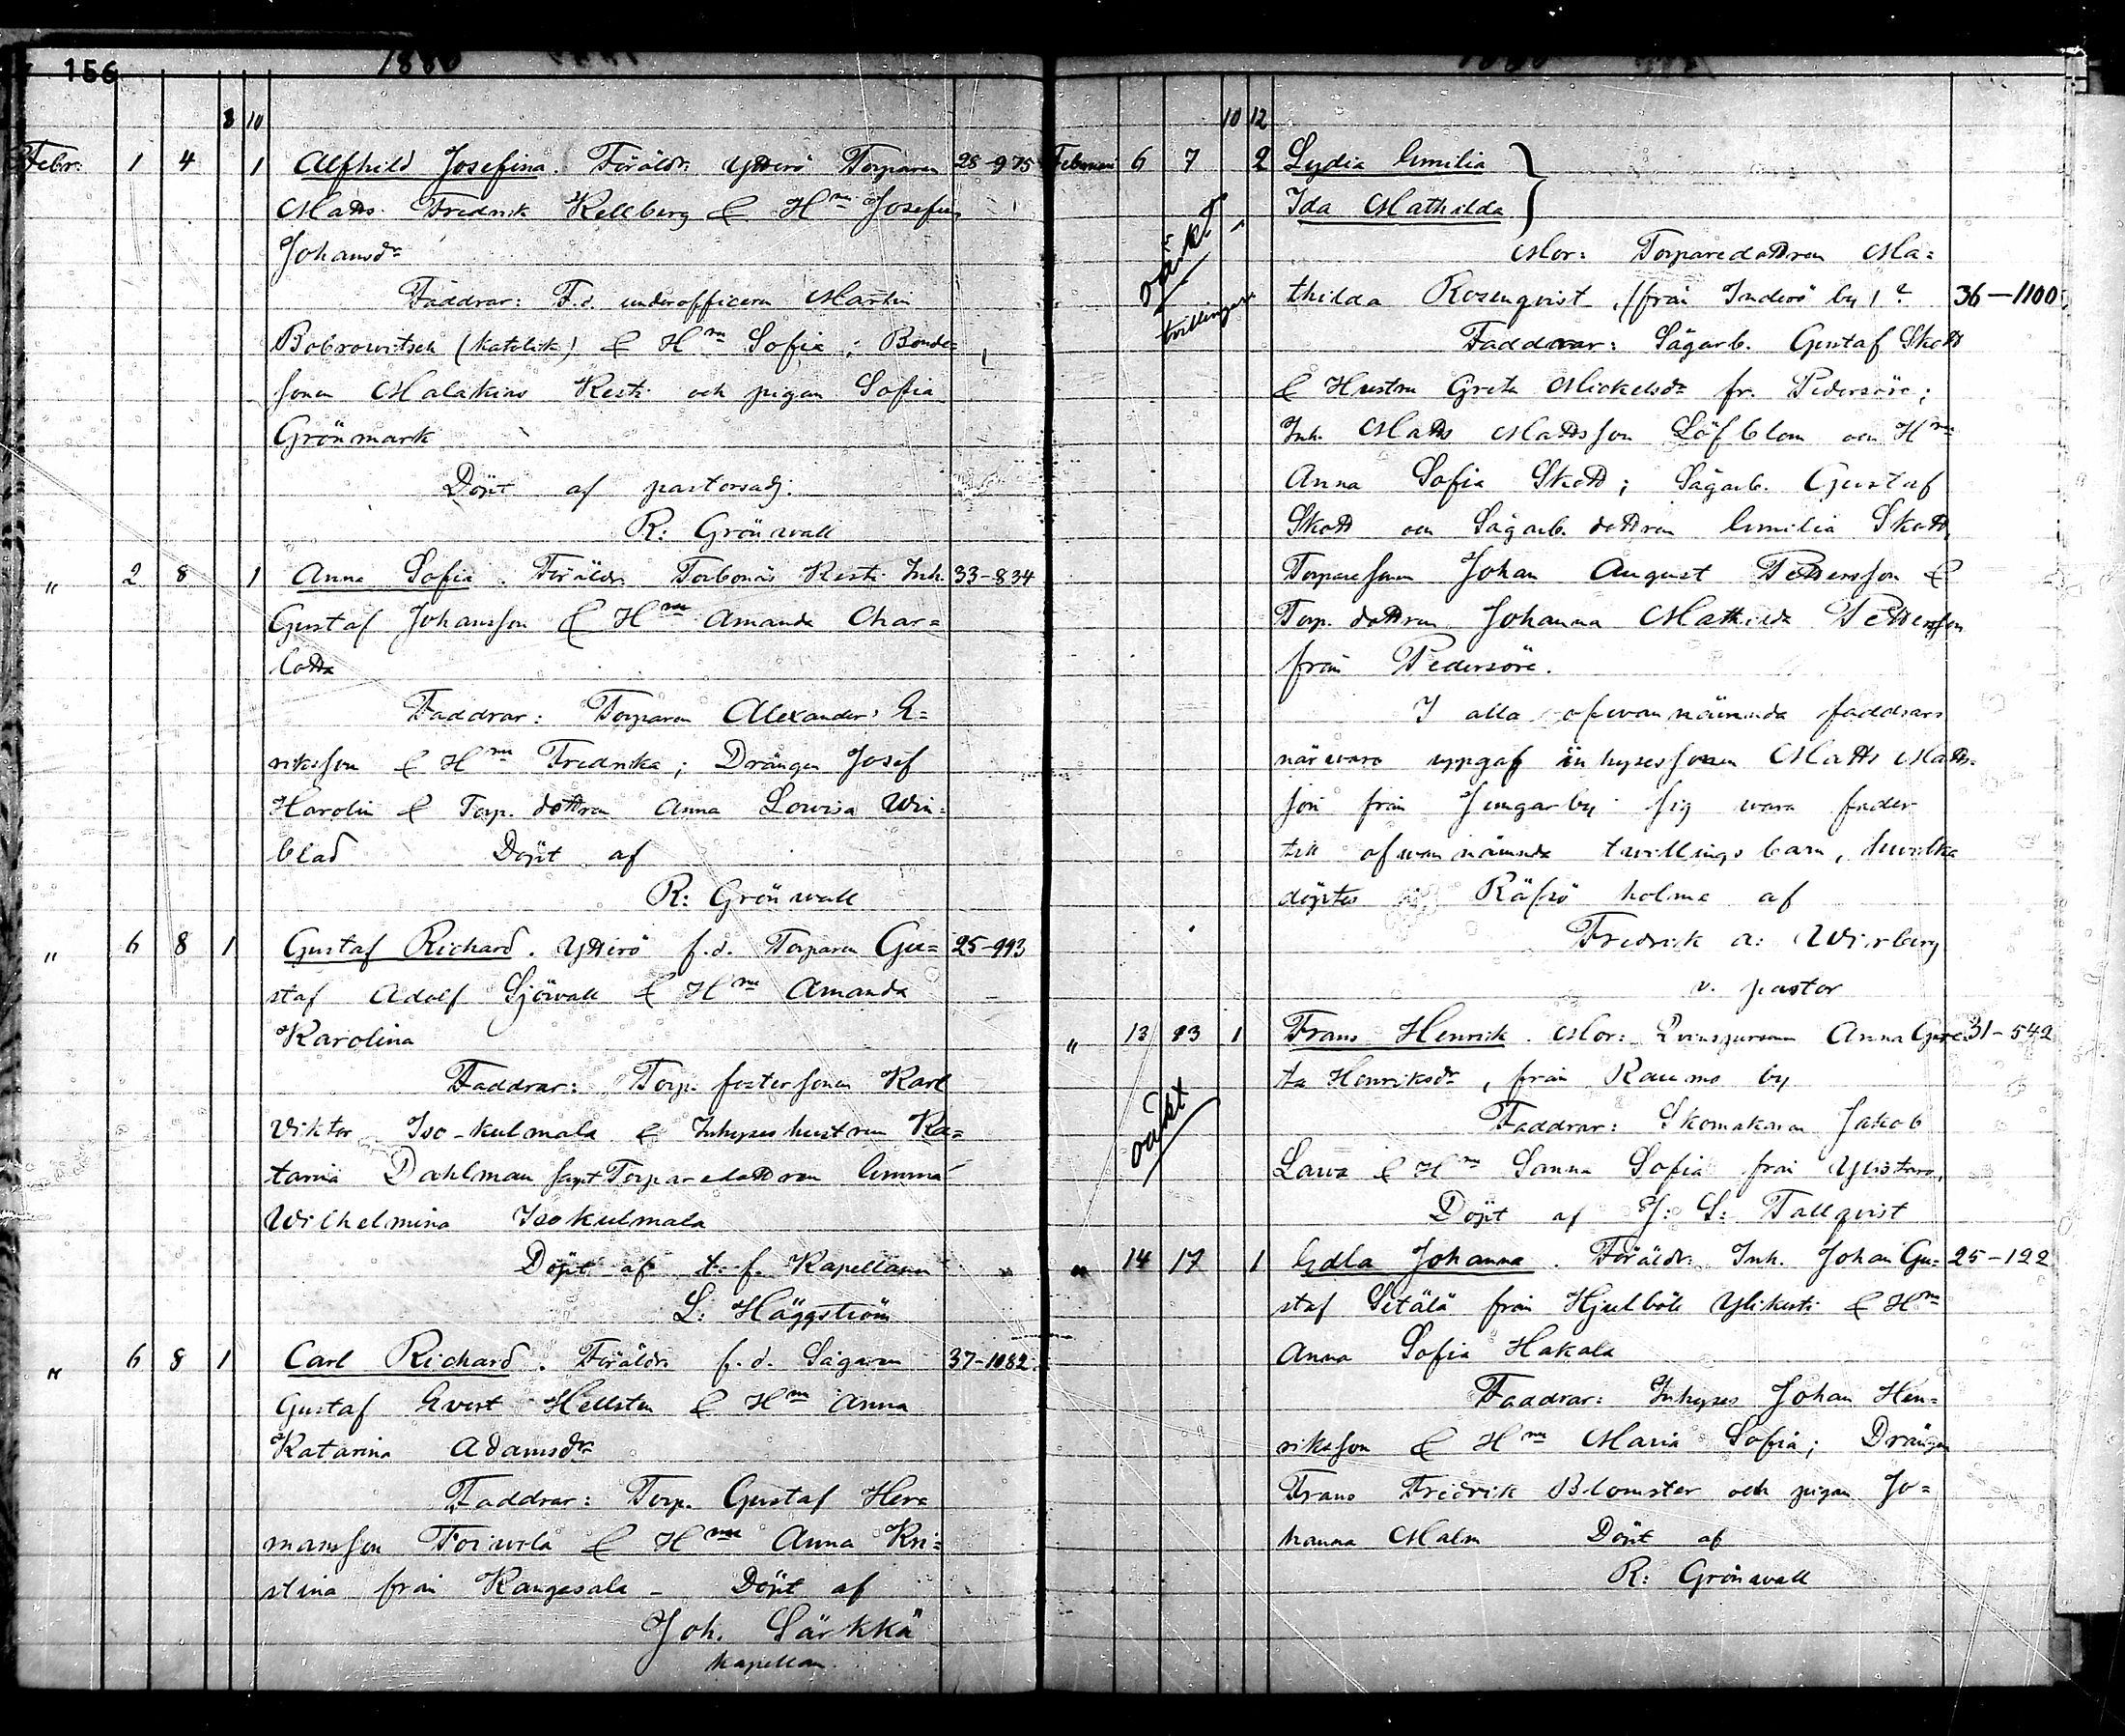 156
1880
8 10
Febr. 1 4 1 Alfhild Josefina. Föräldr. Ytterö Torparen 28-975
Matts Fredrik Kellberg & Hm Josefina
Johansdr
Faddrar: F.d. underofficeren Martin
Bobrowitsch (katolik) & Hru Sofia; Bonde=
sonen Malakias Kesti och pigan Sofia
Grönmark
Döpt af pastorsadj.
R: Grönwall
" 2 8 1 Anna Sofia. Föräldr. Torbonäs Kesti Inh. 33-834
Gustaf Johansson & Hru Amanda Char=
lotta
Faddrar: Torparen Alexander E=
riksson & Hru Fredrika; Drängen Josef
Harolin & Torp. dottren Anna Lowisa Win=
blad Döpt af
R: Grönwall
" 6 8 1 Gustaf Richard. Ytterö f.d. Torparen Gu= 25-993
staf Adolf Sjöwall & Hru Amanda
Karolina
Faddrar: Torp. fostersonen Karl
Viktor Iso-kulmala & Inhyseshustrun Ka=
tarina Dahlman samt Torparedottren Emma
Wilhelmina Isokulmala
Döpt af t.f. Kapellanen
L: Häggström
" 6 8 1 Carl Richard. Föräldr. f.d. Sågaren 37-1082
Gustaf Evert Hellsten & Hru Anna
Katarina Adamsdr
Faddrar: Torp. Gustaf Her=
mansson Toiwola & Hru Anna Kri=
stina från Kangasala - Döpt af
Joh. Särkkä
kapellan.
10 12
Februari 6 7 2 Lydia Emilia
Ida Mathilda
oäkt
tvillingar
Mor: Torparedottren Ma=
thilda Rosenqvist, (från Inderö by) 36-1100
Faddrar: Sågarb. Gustaf Skott
& Hustru Greta Mickelsdr fr. Pedersöre;
Inh. Matts Mattsson Löfblom och Hru
Anna Sofia Skott; Sågarb. Gustaf
Skott och Sågarb. dottren Emilia Skott,
Torparesonen Johan August Pettersson &
Torp. dottren Johanna Mathilda Pettersson
från Pedersöre.
I alla ofwannämnda faddrars
närwaro uppgaf inhysessonen Matts Matts=
son från Jungarby sig wara fader
till ofwannämnda twillingsbarn, hwilka
döptes Räfsö holme af
Fredrik A: Wirberg
v. pastor
" 13 23 1 Frans Henrik. Mor: Qvinspersonen Anna Gre= 31-542
ta Henriksdr, från Raumo by
oäkt
Faddrar: Skomakaren Jakob
Lawa & Hru Sanna Sofia från Ylistaro.
Döpt af J: S: Tallqvist
" 14 17 1 Edla Johanna. Föräldr. Inh. Johan Gu= 25-122
staf Setälä från Hjulböle Ylikesti & Hru
Anna Sofia Hakala
Faddrar: Inhyses Johan Hen=
riksson & Hru Maria Sofia; Drängen
Frans Fredrik Blomster och pigan Jo=
hanna Malm Döpt af
R: Grönwall